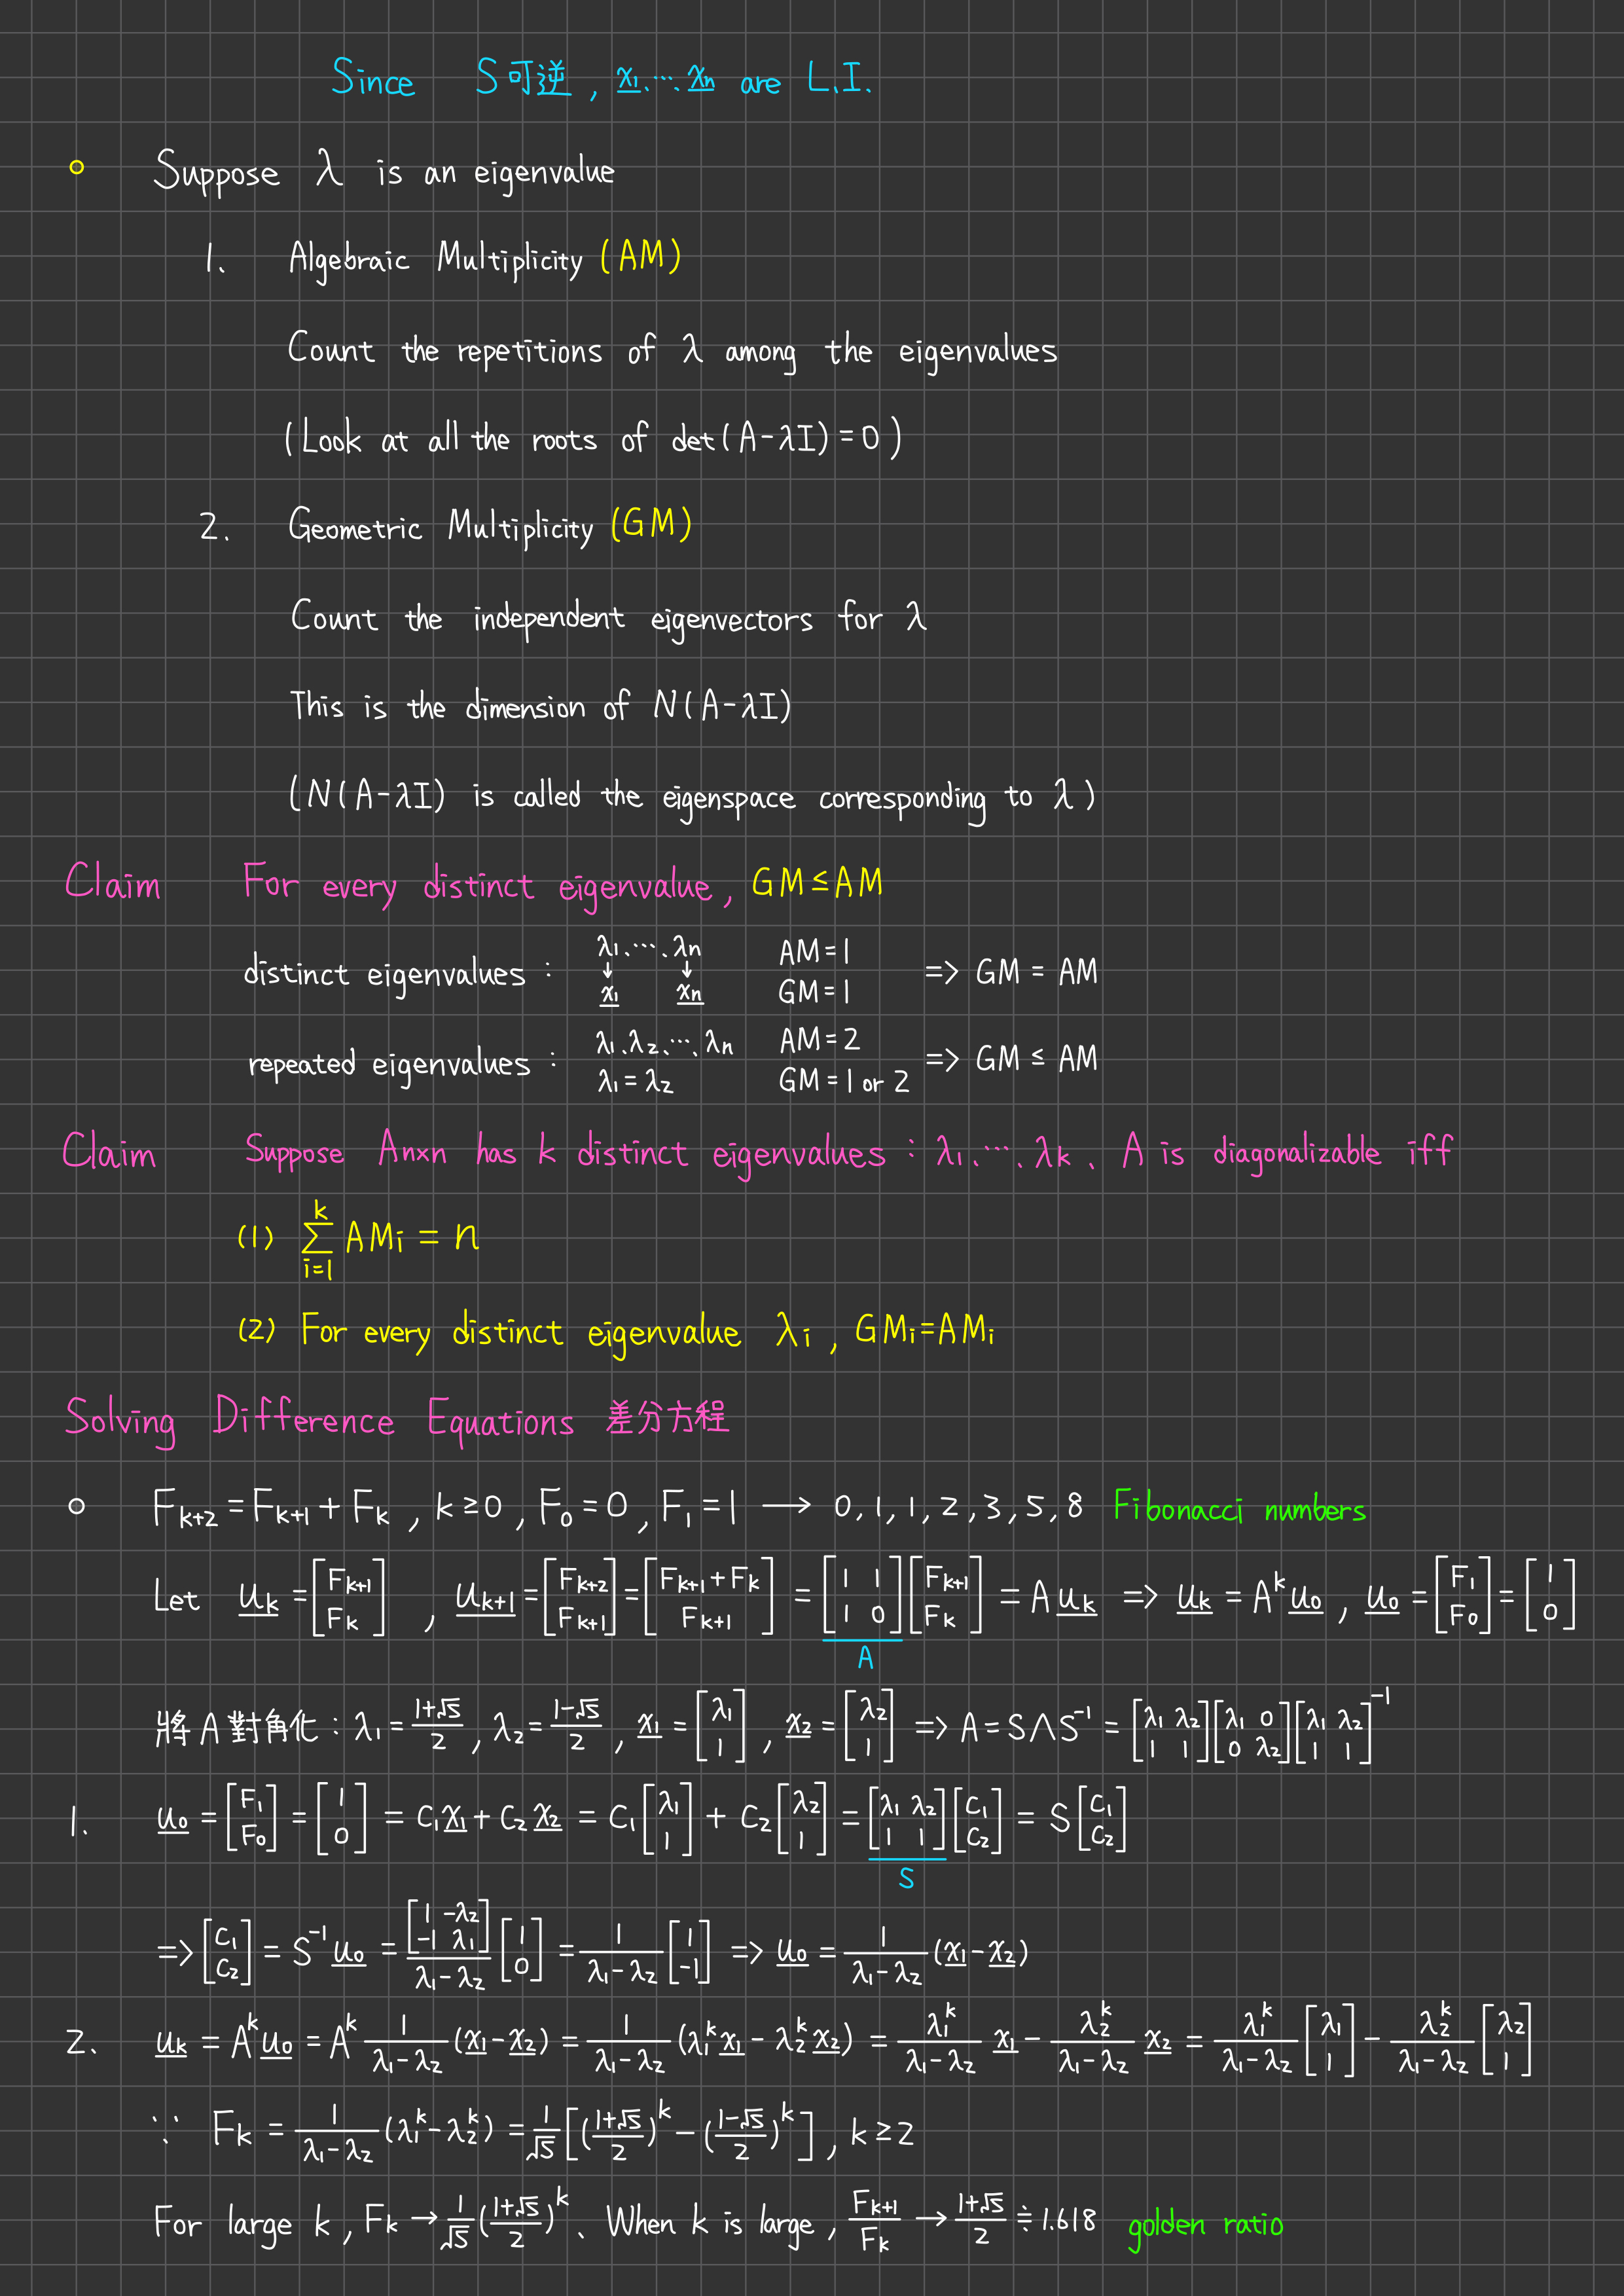 Since S可逆, x₁、…、xₙ are L.I.
○ Suppose λ is an eigenvalue
1. Algebraic Multiplicity (AM)
Count the repetitions of λ among the eigenvalues
(Look at all the roots of det(A-λI)=0)
2. Geometric Multiplicity (GM)
Count the independent eigenvectors for λ
This is the dimension of N(A-λI)
(N(A-λI) is called the eigenspace corresponding to λ)
Claim For every distinct eigenvalue, GM≤AM
distinct eigenvalues : λ₁、…、λₙ ↓ ↓ x₁ xₙ AM=1 GM=1 => GM = AM
repeated eigenvalues : λ₁、λ₂、…、λₙ λ₁=λ₂ AM=2 GM=1 or 2 => GM ≤ AM
Claim Suppose Anxn has k distinct eigenvalues : λ₁、…、λk、A is diagonalizable iff
(1) ∑_{i=1}^{k} AMᵢ = n
(2) For every distinct eigenvalue λᵢ, GMᵢ=AMᵢ
Solving Difference Equations 差分方程
○ F_{k+2}=F_{k+1}+F_k, k≥0, F₀=0, F₁=1 → 0, 1, 1, 2, 3, 5, 8 Fibonacci numbers
Let u_k=[F_{k+1}; F_k], u_{k+1}=[F_{k+2}; F_{k+1}]=[F_{k+1}+F_k; F_{k+1}]=[1 1; 1 0][F_{k+1}; F_k]=A u_k => u_k=A^k u₀, u₀=[F₁; F₀]=[1; 0]
A
將A對角化 : λ₁=(1+√5)/2, λ₂=(1-√5)/2, x₁=[λ₁; 1], x₂=[λ₂; 1] => A=SΛS⁻¹=[λ₁ λ₂; 1 1][λ₁ 0; 0 λ₂][λ₁ λ₂; 1 1]⁻¹
1. u₀=[F₁; F₀]=[1; 0]=c₁x₁+c₂x₂=c₁[λ₁; 1]+c₂[λ₂; 1]=[λ₁ λ₂; 1 1][c₁; c₂]=S[c₁; c₂]
S
=> [c₁; c₂]=S⁻¹u₀=[1 -λ₂; -1 λ₁]/(λ₁-λ₂) [1; 0]=1/(λ₁-λ₂) [1; -1] => u₀=1/(λ₁-λ₂) (x₁-x₂)
2. u_k=A^k u₀=A^k 1/(λ₁-λ₂) (x₁-x₂)=1/(λ₁-λ₂) (λ₁^k x₁-λ₂^k x₂)=λ₁^k/(λ₁-λ₂) x₁-λ₂^k/(λ₁-λ₂) x₂=λ₁^k/(λ₁-λ₂) [λ₁; 1]-λ₂^k/(λ₁-λ₂) [λ₂; 1]
∵ F_k=1/(λ₁-λ₂) (λ₁^k-λ₂^k)=1/√5 [((1+√5)/2)^k-((1-√5)/2)^k], k≥2
For large k, F_k→1/√5 ((1+√5)/2)^k、When k is large, F_{k+1}/F_k→(1+√5)/2≒1.618 golden ratio